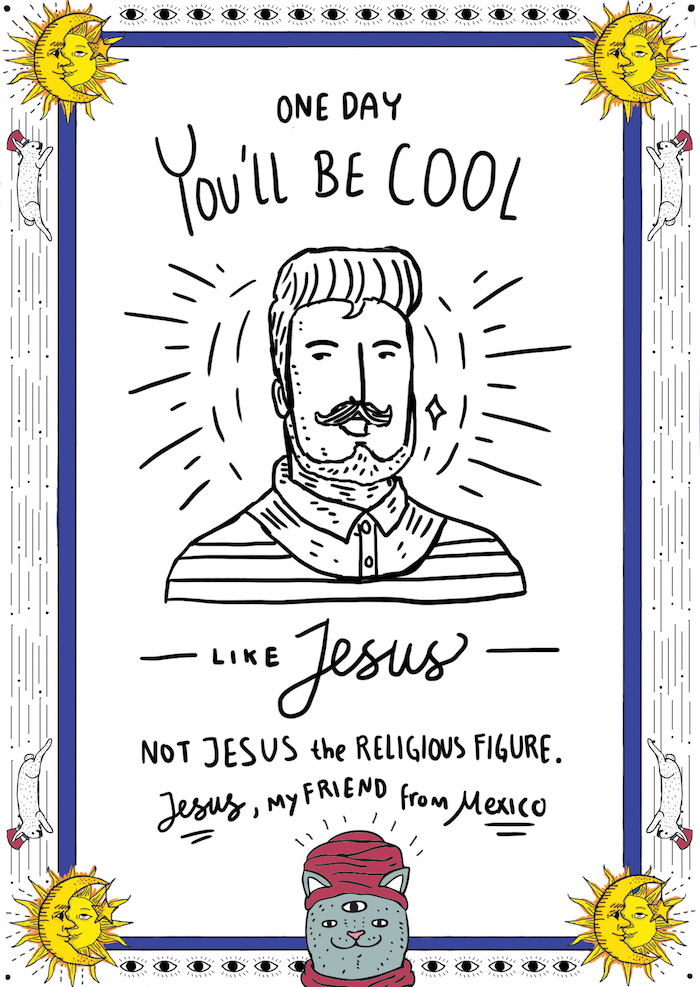 ONE DAY
You'll BE COOL
LIKE Jesus
NOT JESUS the RELIGIOUS FIGURE.
Jesus, MY FRIEND from MEXICO